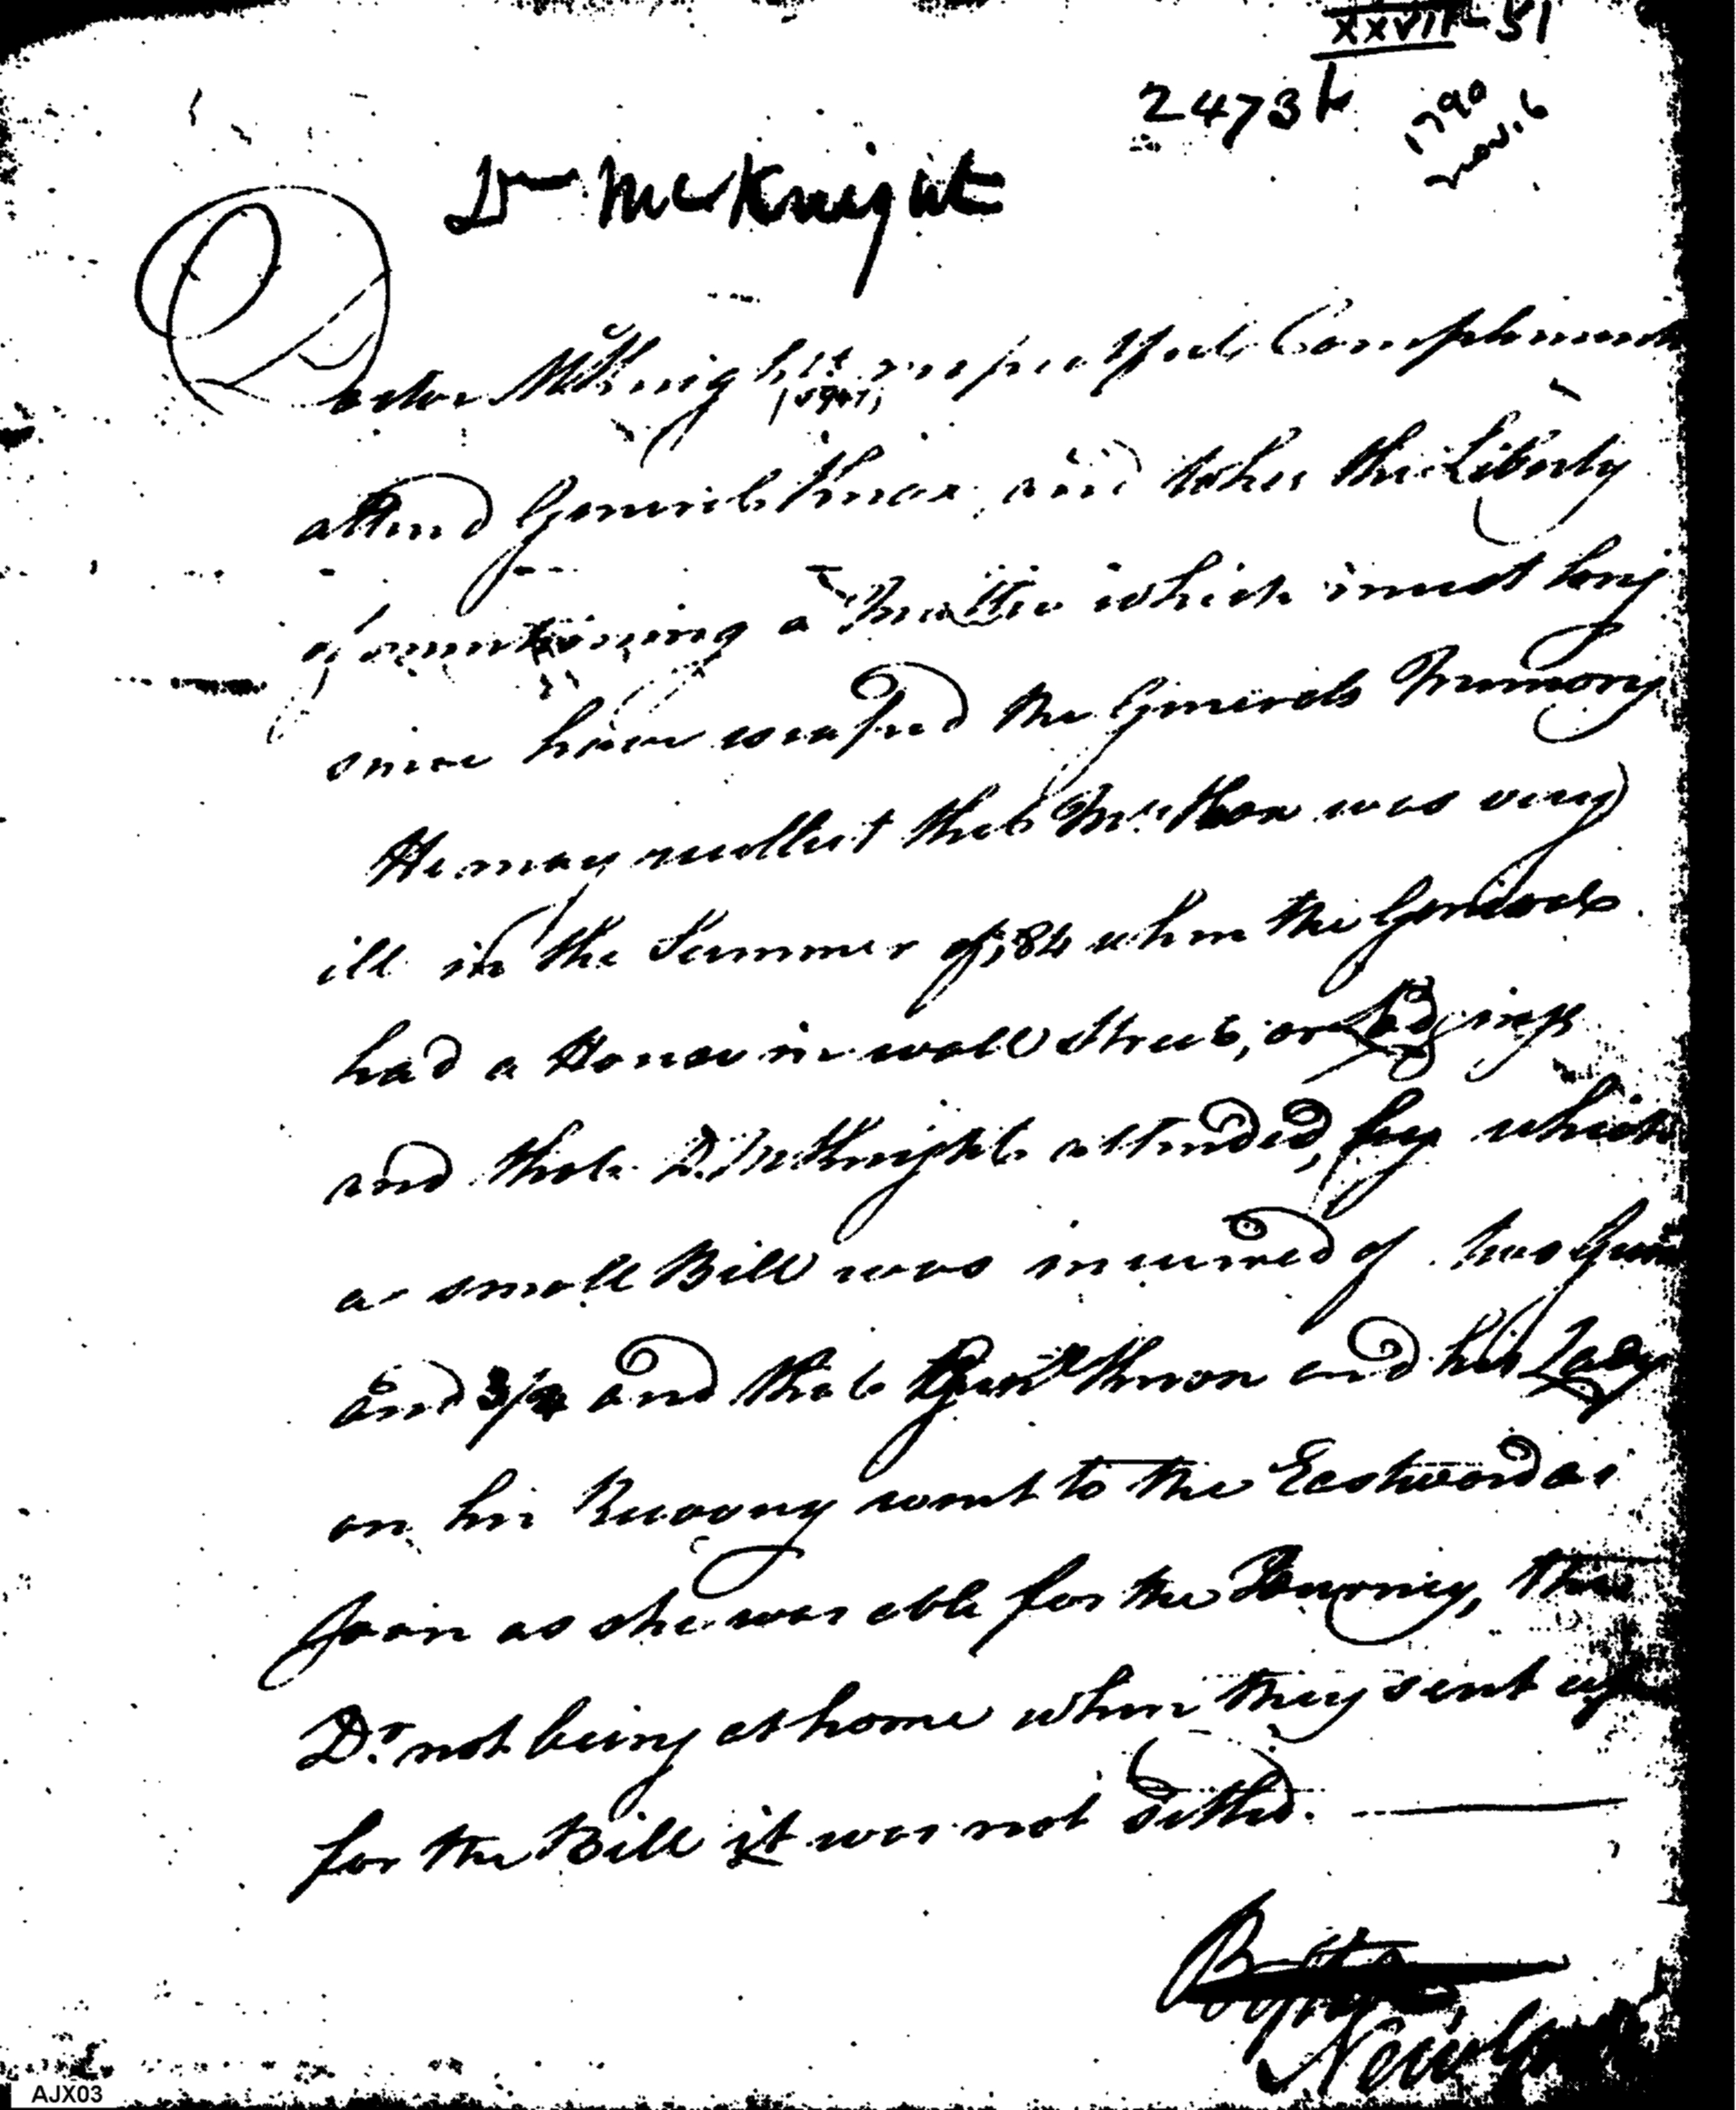 XXVII-51
2473b
1790
Nov. 6
Dr McKnight
Doctor McKnight respectful Compliments
attend General Knox, and takes the Liberty
of mentioning a Matter which must long
since have escaped the Generals Memory
He may recollect that Mrs Knox was very
ill in the Summer of 84 when the General
had a House in wall Street, or Lodgings
and that Dr McKnight attended, by which
a small Bill was incurred of
and 3/4 and that Genl Knox and his Lady
on her Recovery went to the Eastward as
soon as she was able for the Journey, the
Dr. not being at home when they sent up
for the Bill it was not settled.
AJX03